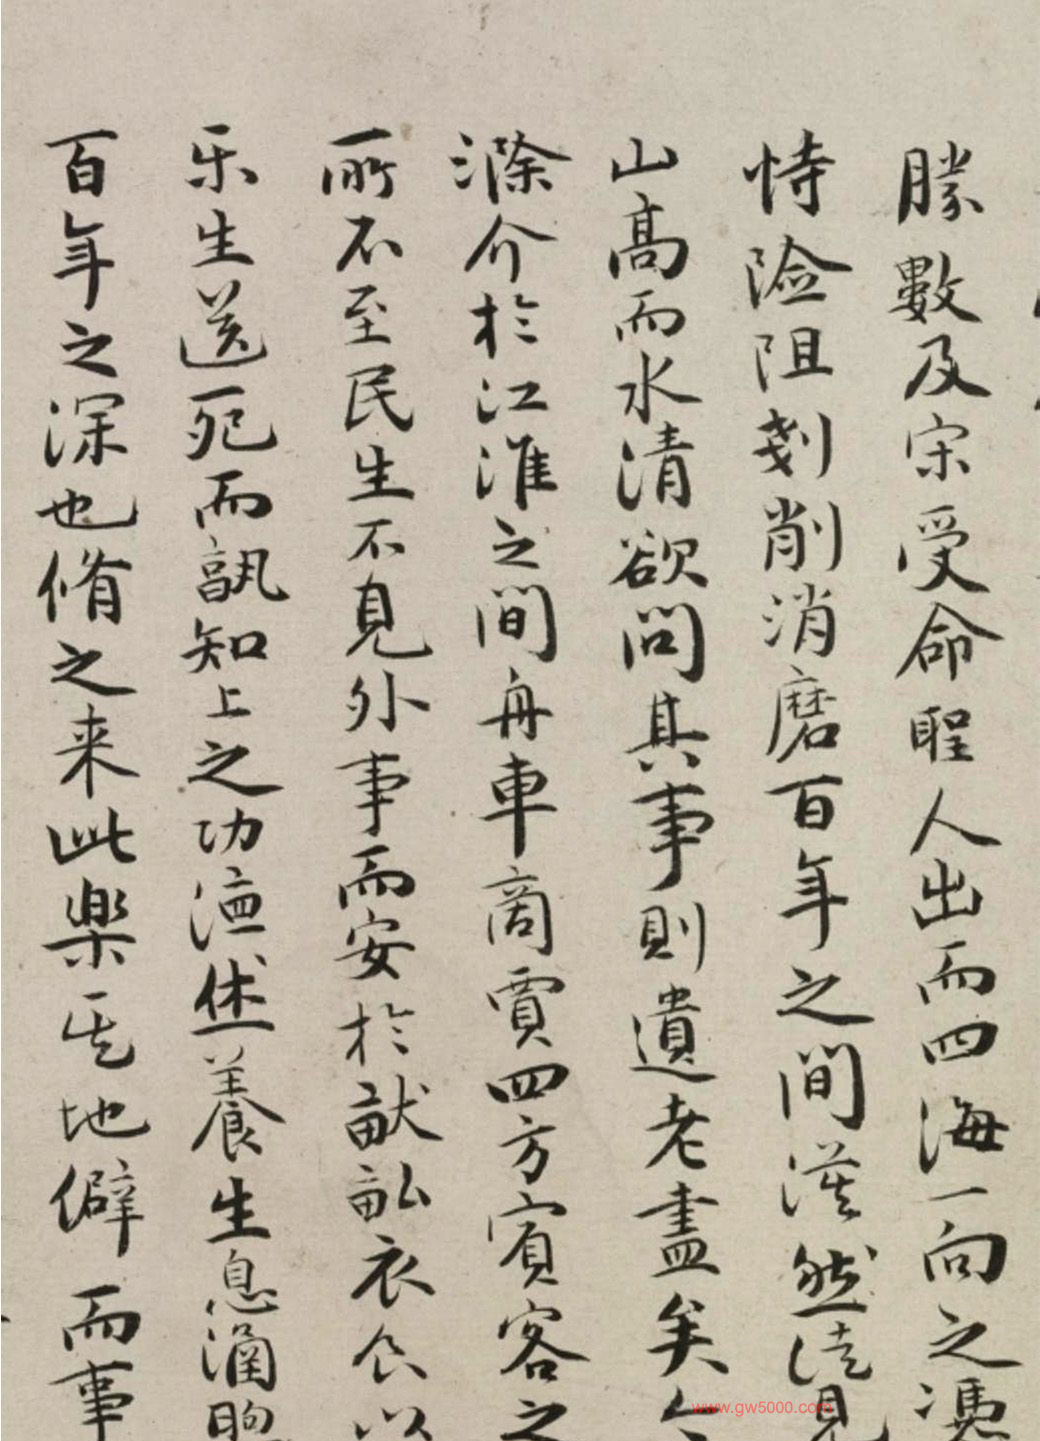 勝數及宋受命聖人出而四海一向之憑
恃險阻剗削消磨百年之間漠然徒見
山高而水清欲問其事則遺老盡矣今
滁介於江淮之間舟車商賈四方賓客之
所不至民生不見外事而安於畎畝衣食以
乐生送死而孰知上之功德休養生息涵煦
百年之深也脩之来此樂其地僻而事
www.gw5000.com